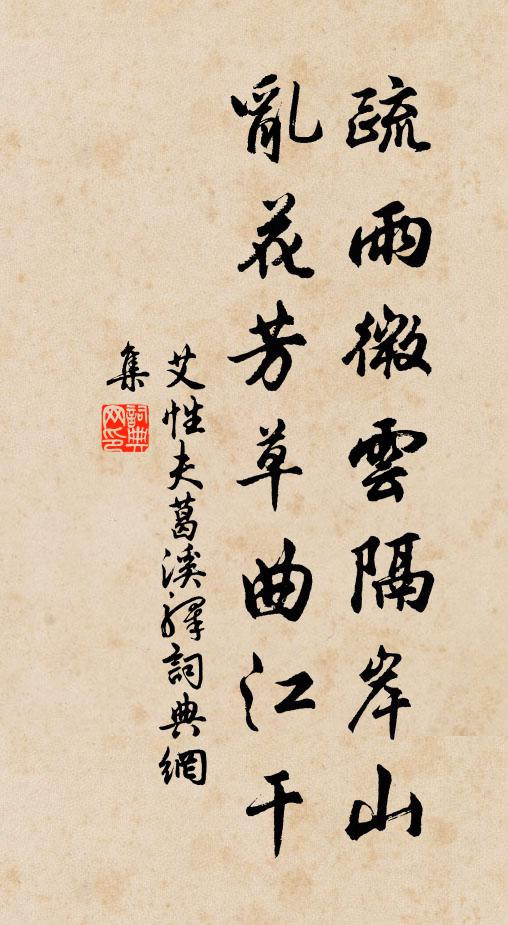 疏雨微雲隔岸山
亂花芳草曲江干
艾性夫葛溪驛詞典網
集
詞典网印